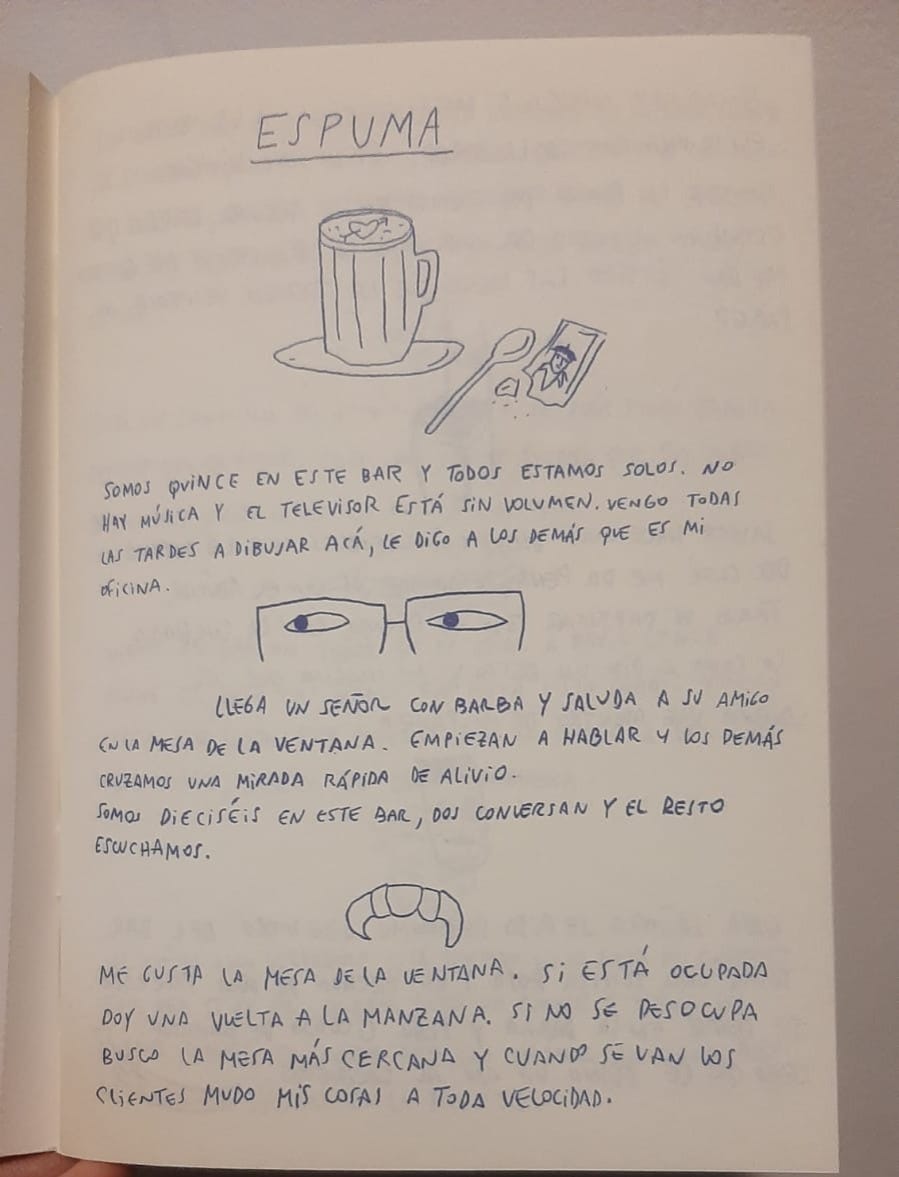 ESPUMA
SOMOS QUINCE EN ESTE BAR Y TODOS ESTAMOS SOLOS. NO
HAY MÚSICA Y EL TELEVISOR ESTÁ SIN VOLUMEN. VENGO TODAS
LAS TARDES A DIBUJAR ACÁ, LE DIGO A LOS DEMÁS QUE ES MI
OFICINA.
LLEGA UN SEÑOR CON BARBA Y SALUDA A SU AMIGO
EN LA MESA DE LA VENTANA. EMPIEZAN A HABLAR Y LOS DEMÁS
CRUZAMOS UNA MIRADA RÁPIDA DE ALIVIO.
SOMOS DIECISÉIS EN ESTE BAR, DOS CONVERSAN Y EL RESTO
ESCUCHAMOS.
ME GUSTA LA MESA DE LA VENTANA. SI ESTÁ OCUPADA
DOY UNA VUELTA A LA MANZANA. SI NO SE DESOCUPA
BUSCO LA MESA MÁS CERCANA Y CUANDO SE VAN LOS
CLIENTES MUDO MIS COSAS A TODA VELOCIDAD.